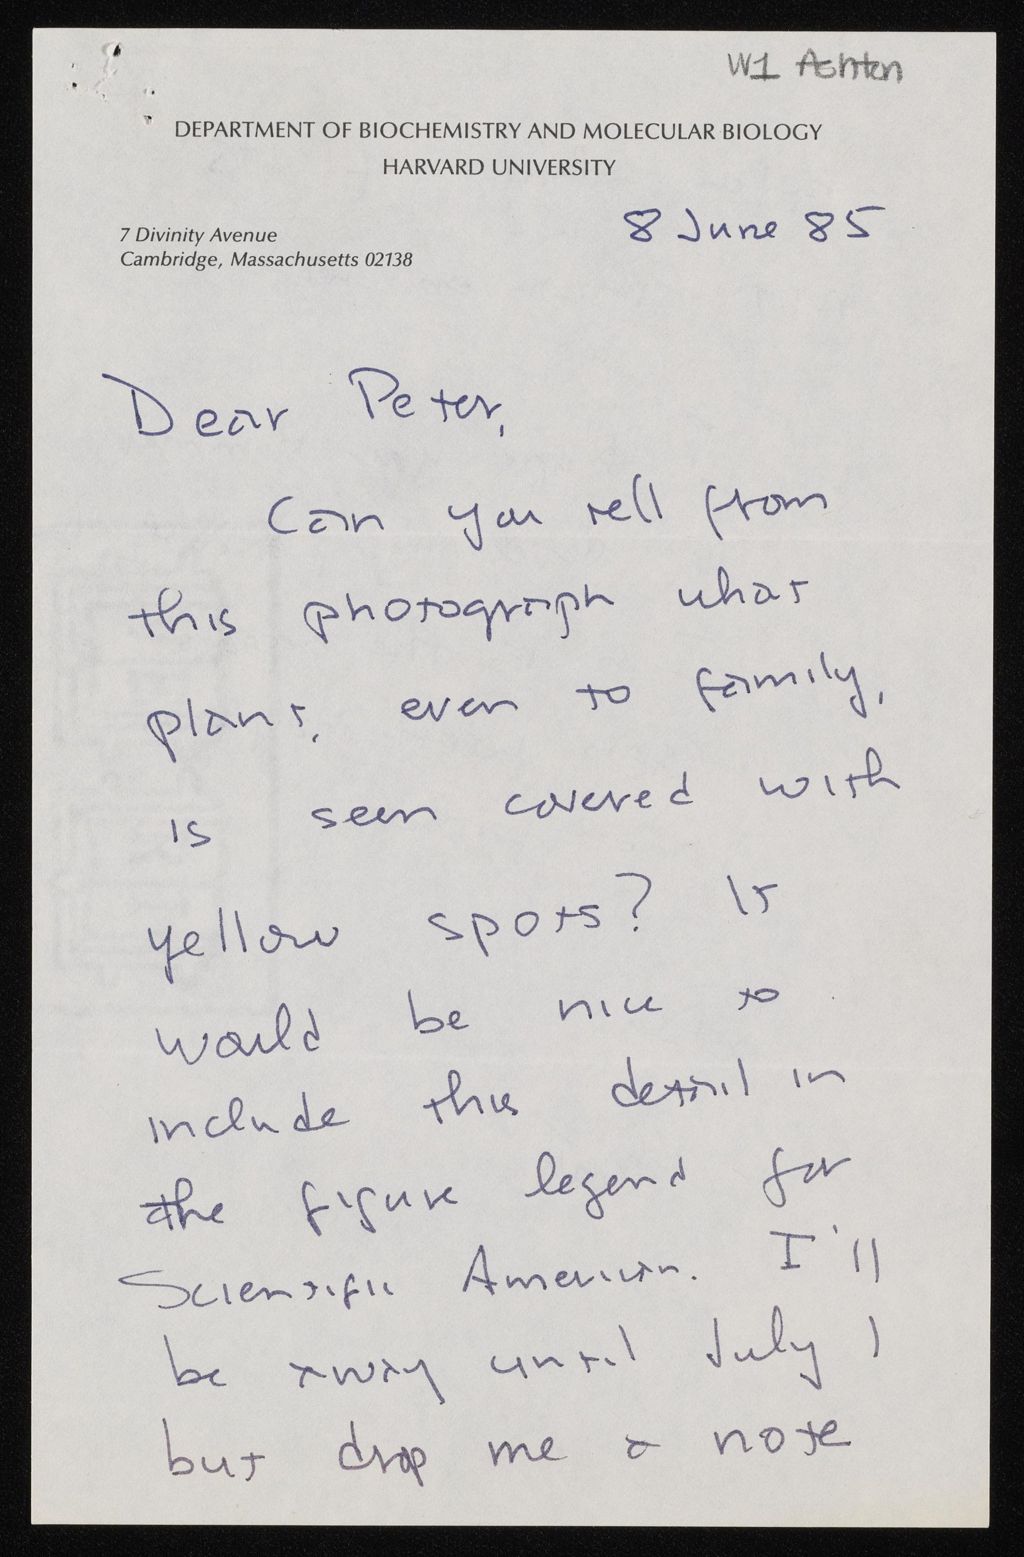 W1 Ashton
DEPARTMENT OF BIOCHEMISTRY AND MOLECULAR BIOLOGY
HARVARD UNIVERSITY
7 Divinity Avenue
Cambridge, Massachusetts 02138
8 June 85
Dear Peter,
Can you tell from
this photograph what
plant, even to family,
is seen covered with
yellow spots? It
would be nice to
include this detail in
the figure legend for
Scientific American. I'll
be away until July 1
but drop me a note